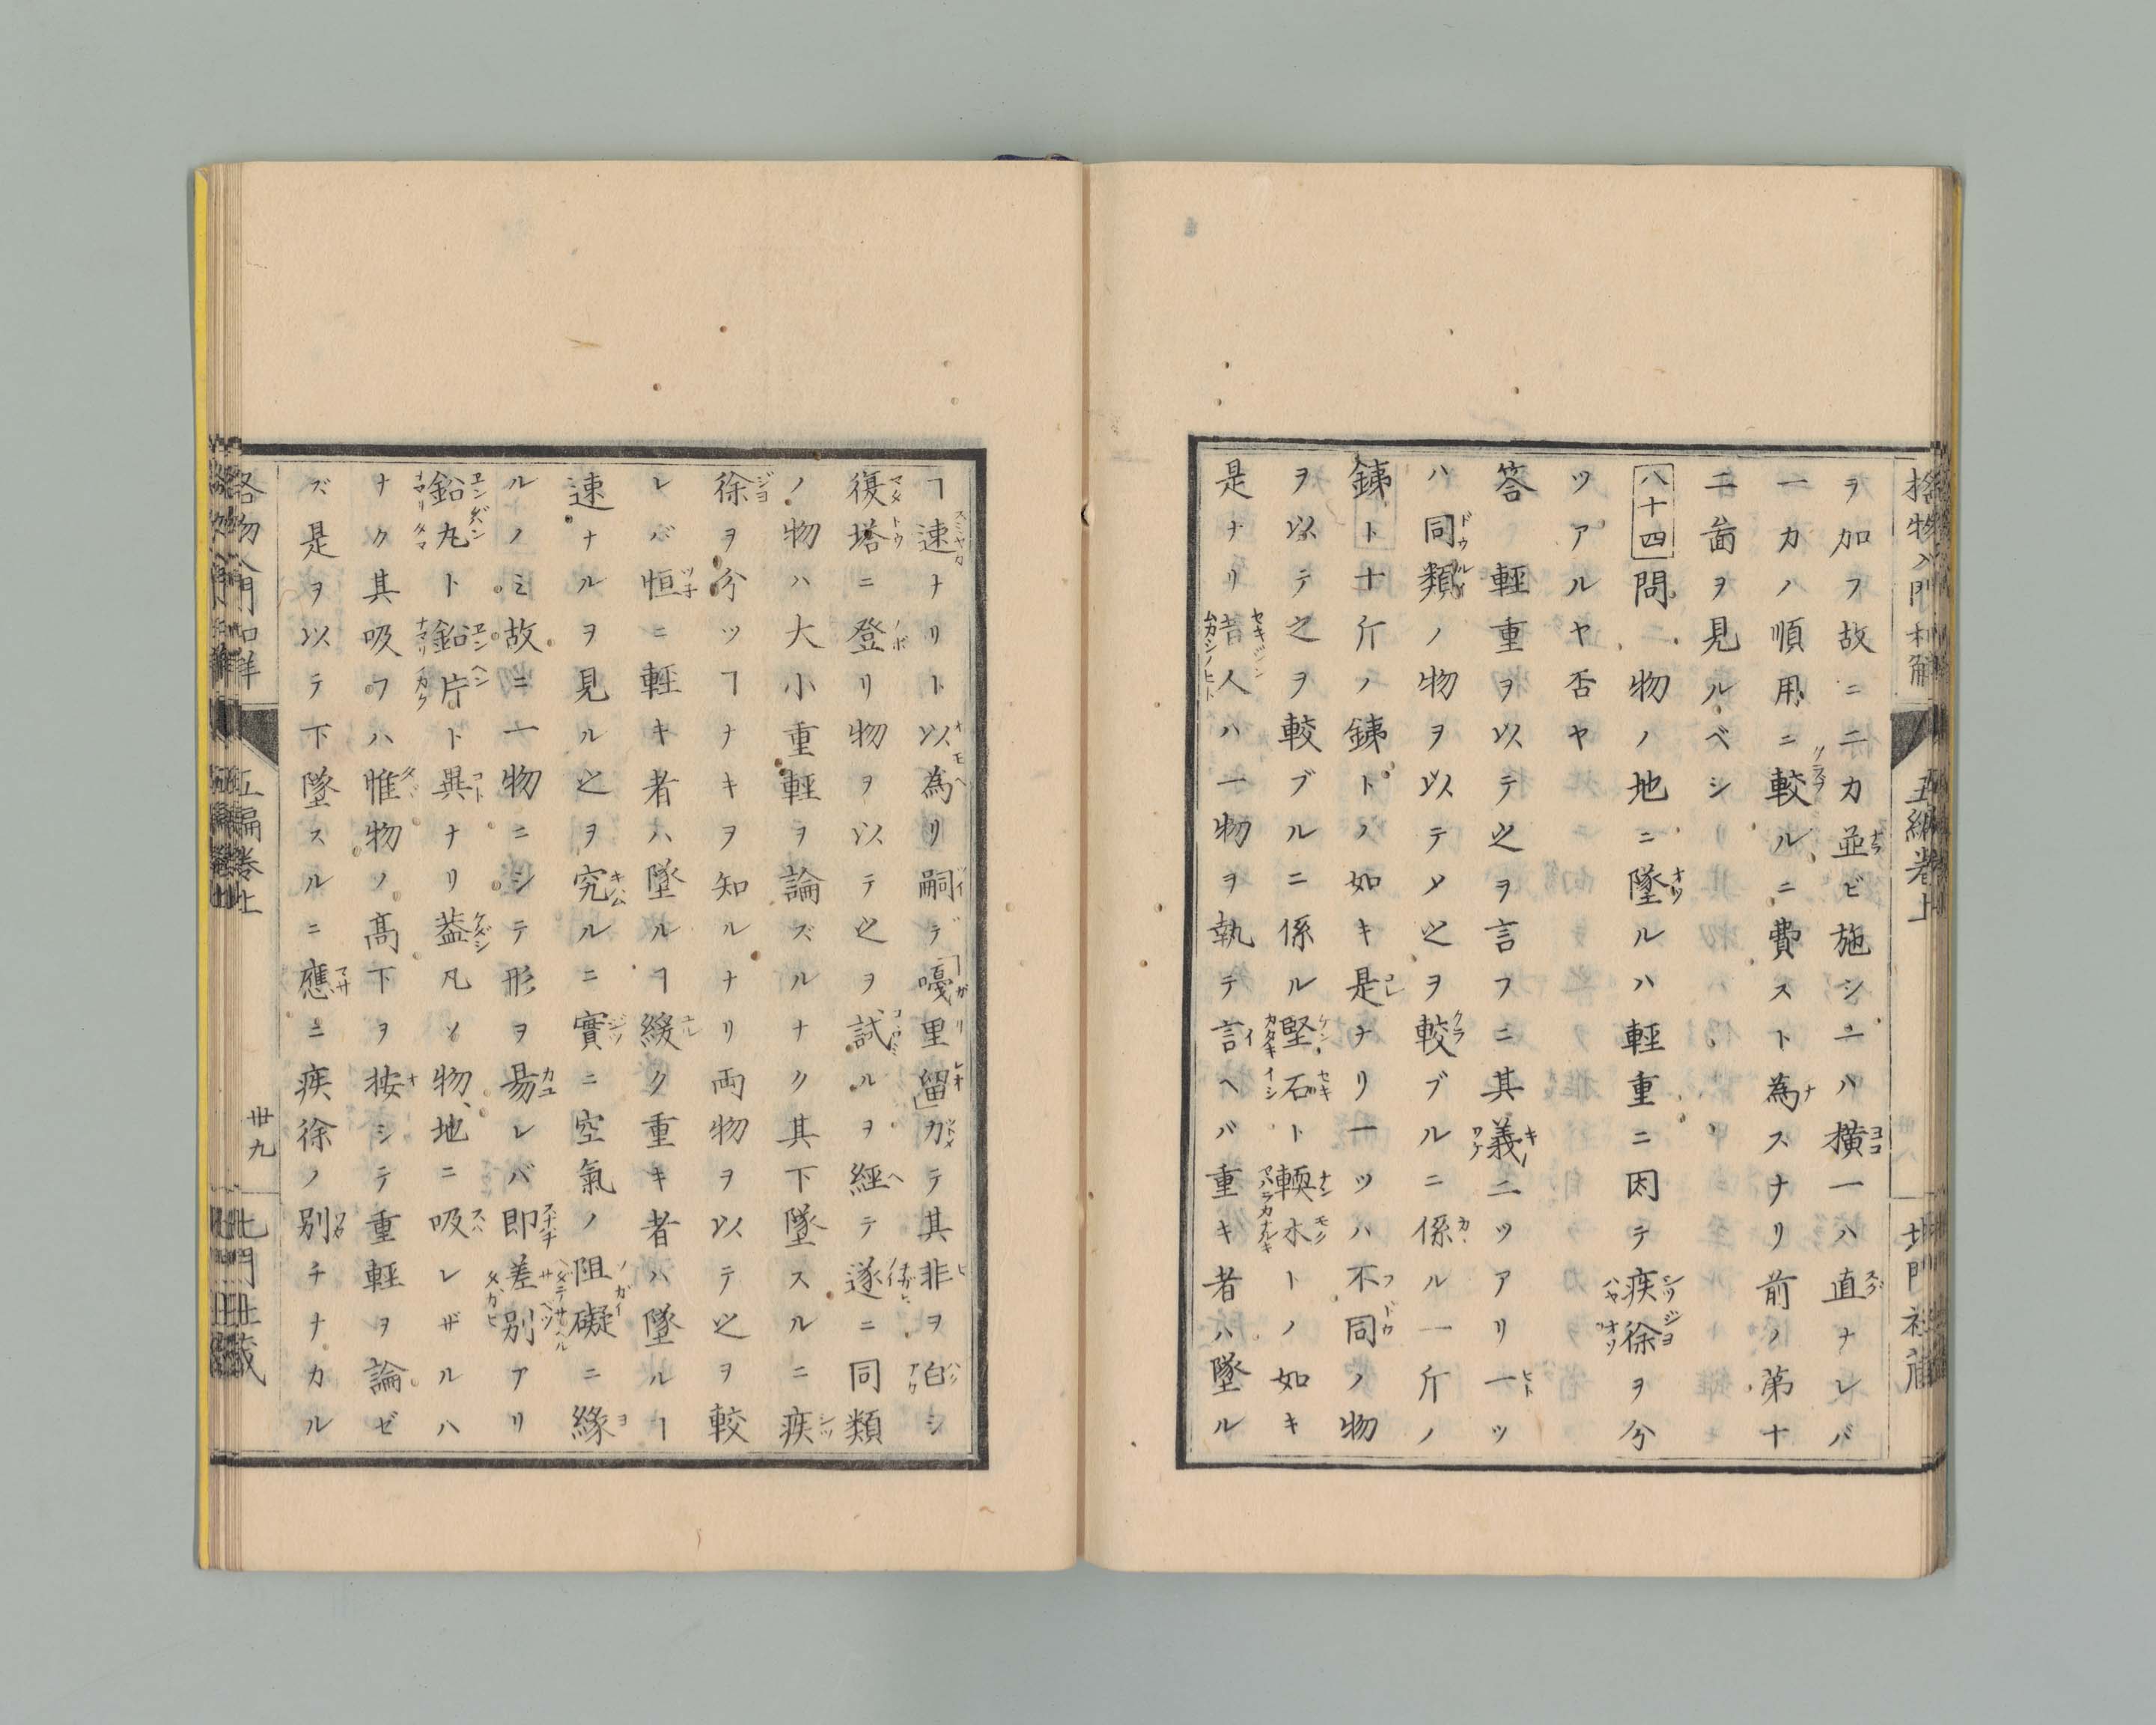 格物入門和解
五編巻上
北門社蔵
ラ加フ故ニ二カ並ビ施シ一ハ横一ハ直ナレバ
一カハ順用ニ較ルニ費スト為スナリ前ノ第十
二畨ヲ見ルベシ
八十四 問二物ノ地ニ墜ルハ輕重ニ因テ疾徐ヲ分
ツアルヤ否ヤ
答輕重ヲ以テ之ヲ言フニ其義二ツアリ一ツ
ハ同類ノ物ヲ以テメ之ヲ較ブルニ係ル一斤ノ
銕ト十斤ノ銕トノ如キ是ナリ一ツハ不同ノ物
ヲ以テ之ヲ較ブルニ係ル堅石ト輭木トノ如キ
是ナリ昔人ハ一物ヲ執テ言ヘバ重キ者ハ墜ル
ヿ速ナリト以為リ嗣デ「嘎里留」カテ其非ヲ白シ
復塔ニ登リ物ヲ以テ之ヲ試ルヲ經テ遂ニ同類
ノ物ハ大小重輕ヲ論ズルナク其下墜スルニ疾
徐ヲ分ツヿナキヲ知ルナリ両物ヲ以テ之ヲ較
レバ恒ニ輕キ者ハ墜ルヿ緩ク重キ者ハ墜ルヿ
速ナルヲ見ル之ヲ究ルニ實ニ空氣ノ阻礙ニ緣
ルノミ故ニ一物ニシテ形ヲ易レバ即差別アリ
鉛丸ト鉛片ト異ナリ葢凡ソ物地ニ吸レザルハ
ナク其吸フハ惟物ノ髙下ヲ按シテ重輕ヲ論ゼ
ズ是ヲ以テ下墜スルニ應ニ疾徐ノ別チナカル
格物入門和解
五編巻上
卅九
北門社蔵